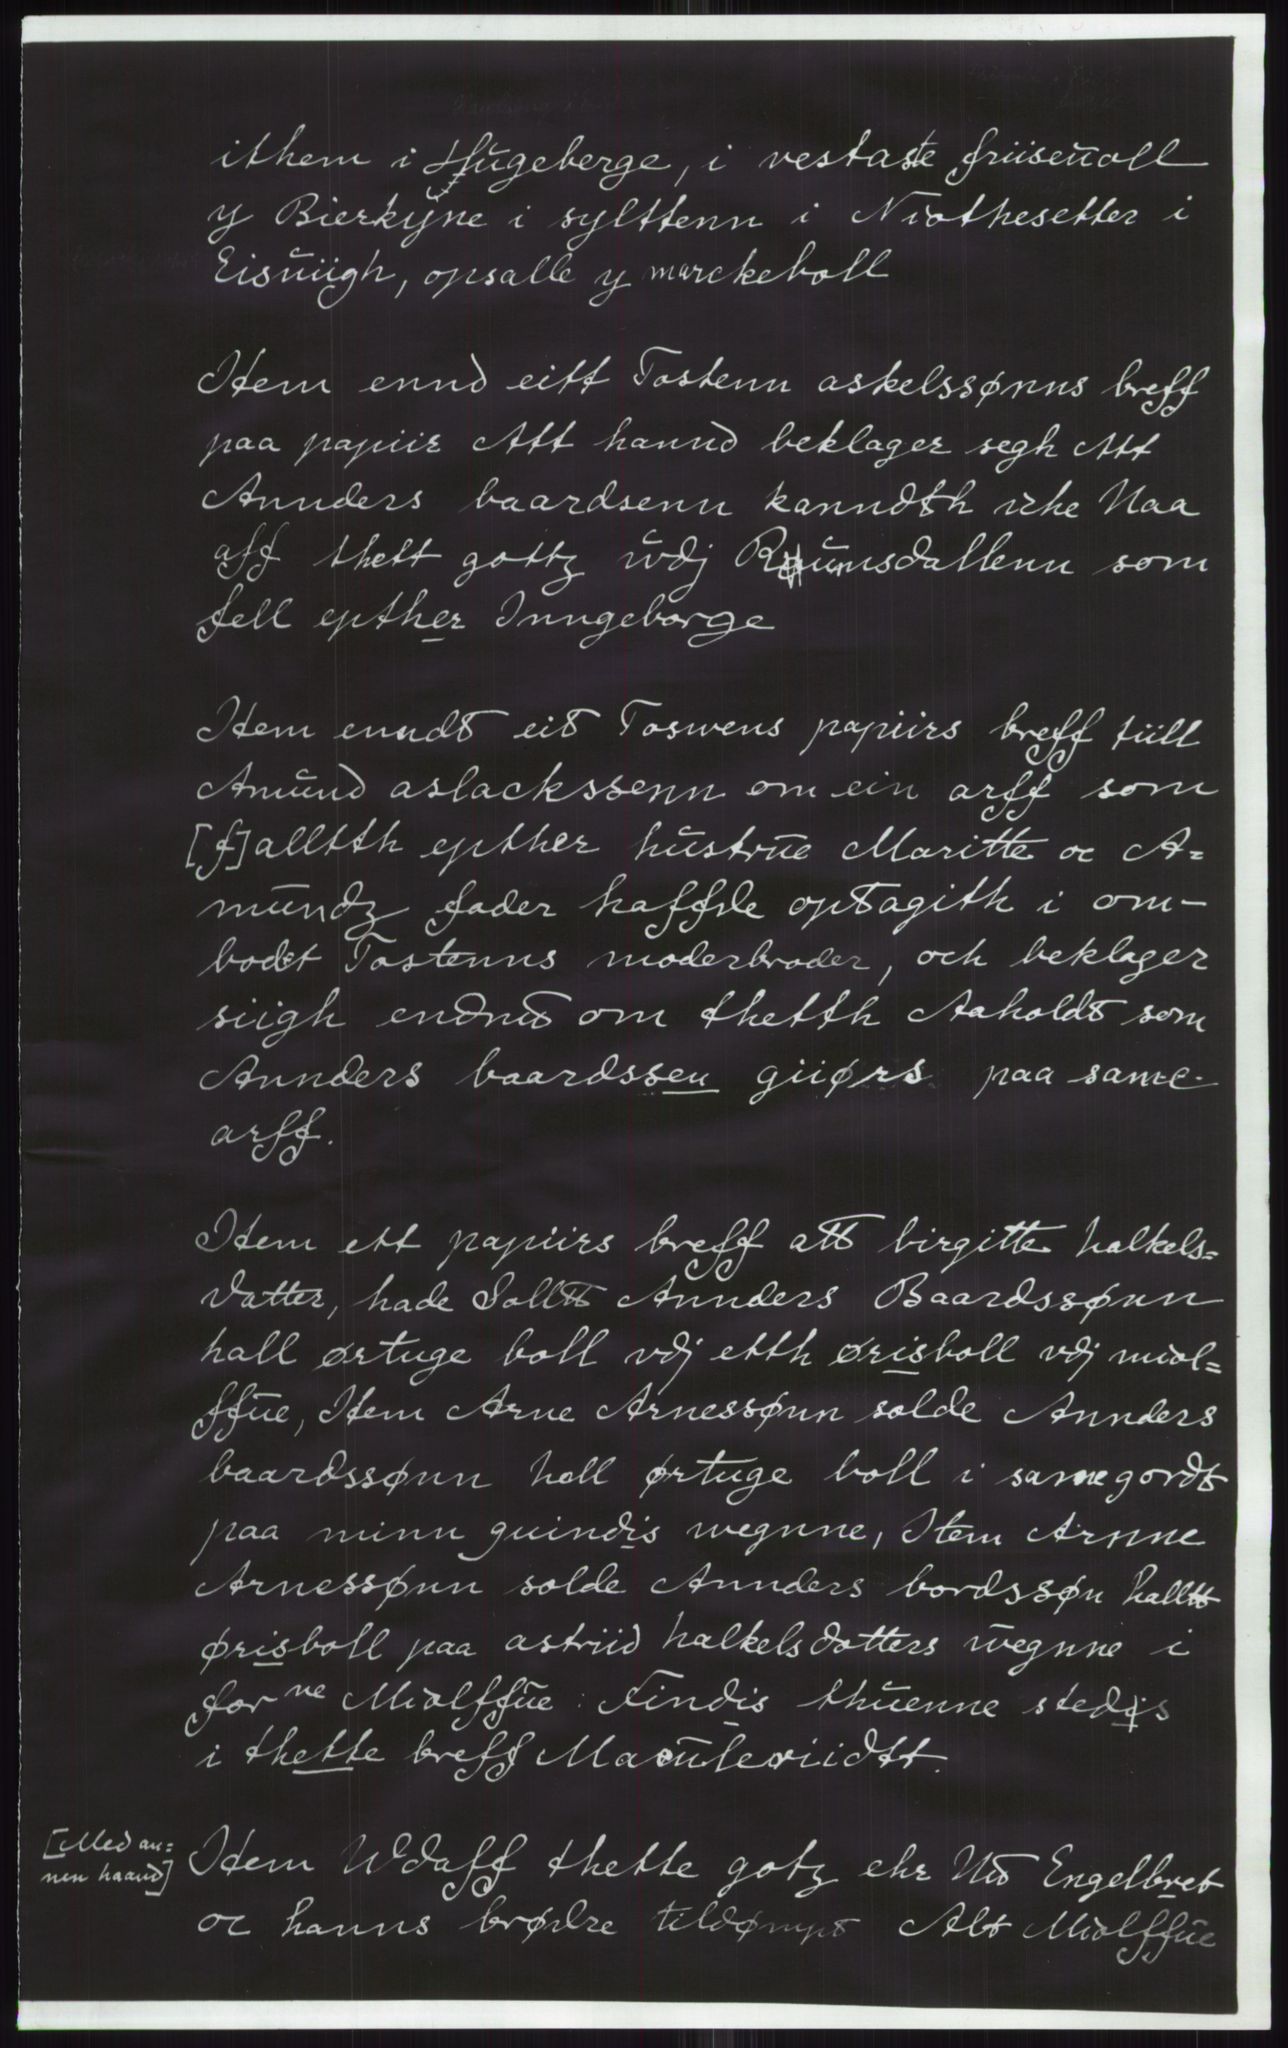 ithem i Hũgeberge, i vestaste friisẽuoll
y Bierkÿne i sylttenn i Niothesetter i
Eisũiigh, opsalle y marckeboll
Item ennd eitt Tostenn askelssønns breff
paa papiir Att hannd beklager segh Att
Annders baardsenn kanndth iche Naa
aff thett gottz ũdj Raũmsdallenn som
fell epther Inngeborge
Item enndt eit Toswens papiirs breff tiill
Amũnd aslackssenn om ein arff som
[f]alltth epther hũstrũe Maritte oc A=
mũndz fader haffde optagith i om-
bodet Tostenns moderbroder, och beklager
siigh endnd om thetth Aaholdt som
Annders baardssen giiørs paa same
arff.
Item ett papiirs breff att birgitte halkels=
datter, hade Solltt Annders Baardssønn
hall ørtuge boll vdj etth ørisboll vdj miol=
ffũe, Item Arne Arnessønn solde Annders
baardssønn hall ørtuge boll i same gordt
paa minn quindis wegnne, Item Arnne
Arnessønn solde Annders bordssøn halltt
ørisboll paa astriid halkelsdotters wegnne i
for ne Miolffũe: Findis thũenne stedis
i thette breff Macũleriidtt.
[Med an=
nen haand]
Item Udaff thette gotz ehr Nũ Engelbret
oc hanns brødre tildømpt Alt Miolffũe